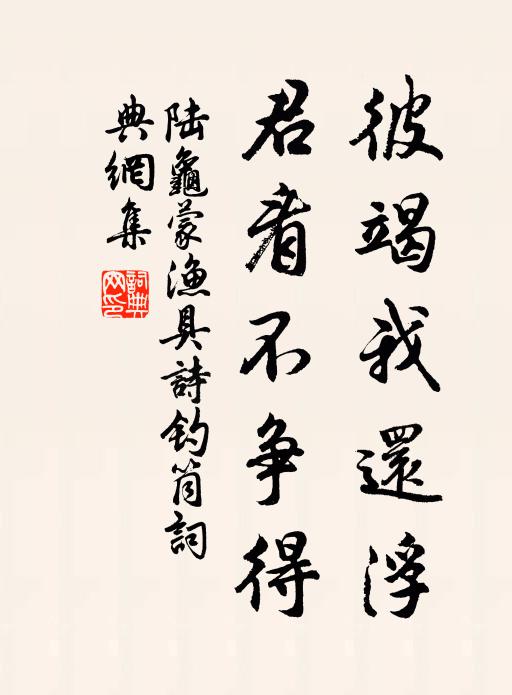 彼竭我還浮
君看不争得
陆龜蒙漁具詩釣筒詞
典網集
詞典网印